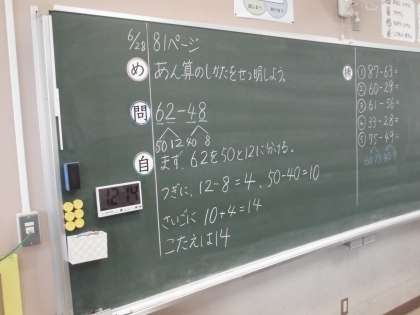 6/28 81ページ
め あん算のしかたをせつ明しよう。
問 62-48
50 12 40 8
自 まず、62を50と12に分ける。
つぎに、12-8=4、50-40=10
さいごに 10+4=14
こたえは14
12:14
① 87-63=
② 60-29=
③ 61-56
④ 33-28=
⑤ 75-49=